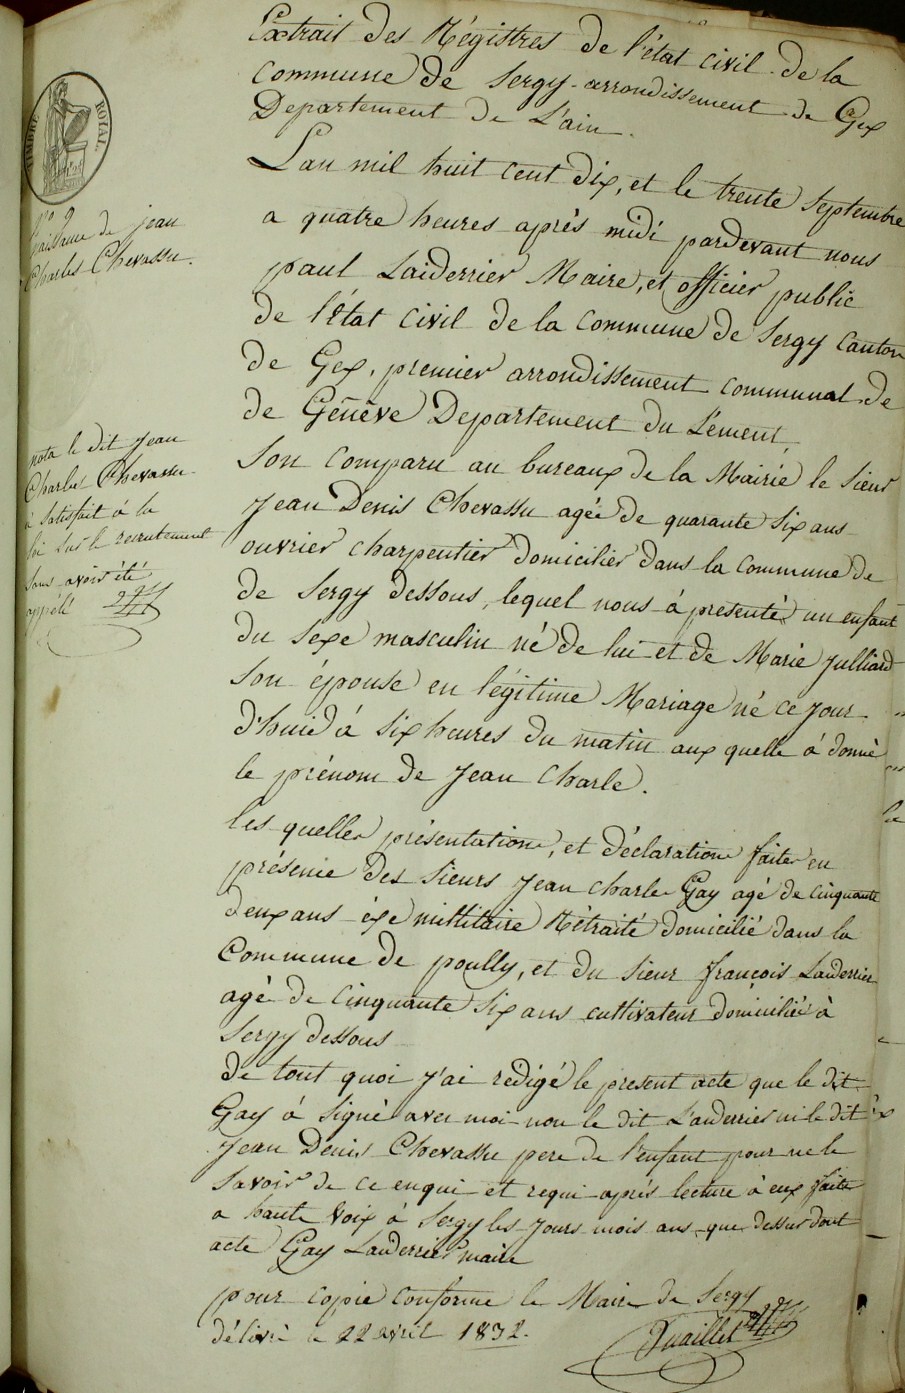 Extrait des Régistres de l'état civil de la
Commune de Sergy arrondissement de Gex
Departement de L'ain.
TIMBRE ROYAL.
L'an mil huit cent dix, et le trente Septembre
a quatre heures après midi pardevant nous
paul Laiderrier Maire, et officier public
de l'état Civil de la Commune de Sergy Canton
de Gex, premier arrondissement communal de
de Genève Departement du Lément
Son Comparu au bureaux de la Mairié le Sieur
Jean Denis Chevassu agée de quarante Six ans
ouvrier Charpentier domicilier dans la Commune de
de Sergy dessous, lequel nous à presenté un enfant
du Sexe masculin né de lui et de Marie Julliard
Son épouse en légitime Mariage né ce jour
d'huid à Six heures du matin aux quelle à donné
le prénom de Jean Charle.
les quelles présentation, et déclaration faite en
présence des Sieurs Jean Charle Gay agé de Cinquante
deux ans éxe millitaire Rétraité domicilié dans la
Commune de poully, et du Sieur françois Laiderrier
agé de Cinquante Six ans cultivateur domiciliée à
Sergy dessous
de tout quoi j'ai redigé le present acte que le dit
Gay à Signé avec moi non le dit Laiderrier ni le dit
Jean Denis Chevassu pere de l'enfant pour ne le
Savoir de ce enqui et requi après lecture à eux faite
a haute Voix à Sergy les jours mois ans que dessus dont
acte Gay Laiderrier maire
pour copie Conforme le Maire de Sergy
délivré le 22 avril 1832.
N° 9
Naissance de jean
Charles Chevassu.
nota le dit Jean
Charles Chevassu
à Satisfait à la
loi Sur le recrutement
Sans avoir été
appélé